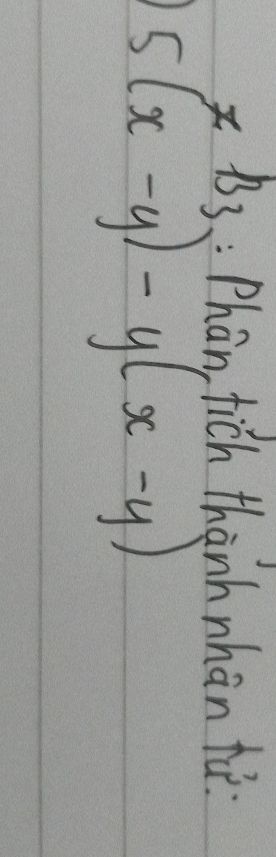 * B3: Phân tích thành nhân tử:
) 5(x - y) - y(x - y)